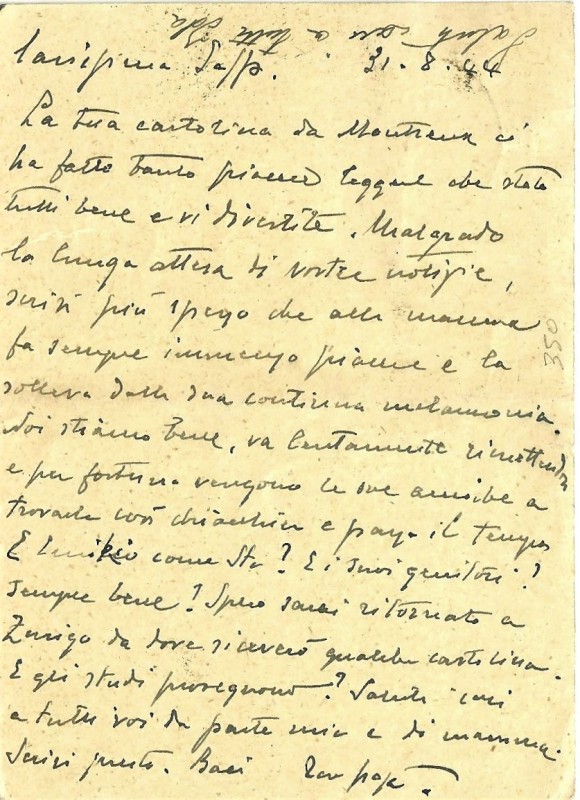 Saluti cari a tutti Ida
Carissima Zaff. 31.8.44
La tua cartolina da Montreux ci
ha fatto tanto piacere leggere che state
tutti bene e vi divertite. Malgrado
la lunga attesa di vostre notizie,
scrivi più spesso che alla mamma
fa sempre immenso piacere e la
solleva dalla sua continua melanconia.
Noi stiamo bene, va lentamente rimettendosi
e per fortuna vengono le sue amiche a
trovarla così chiacchiera e passa il tempo
E come sta? E i suoi genitori?
sempre bene? Spero sarai ritornato a
Zurigo da dove riceverò qualche cartolina.
E gli studi proseguono? Saluti cari
a tutti voi da parte mia e di mamma.
Scrivi presto. Baci papà.
350